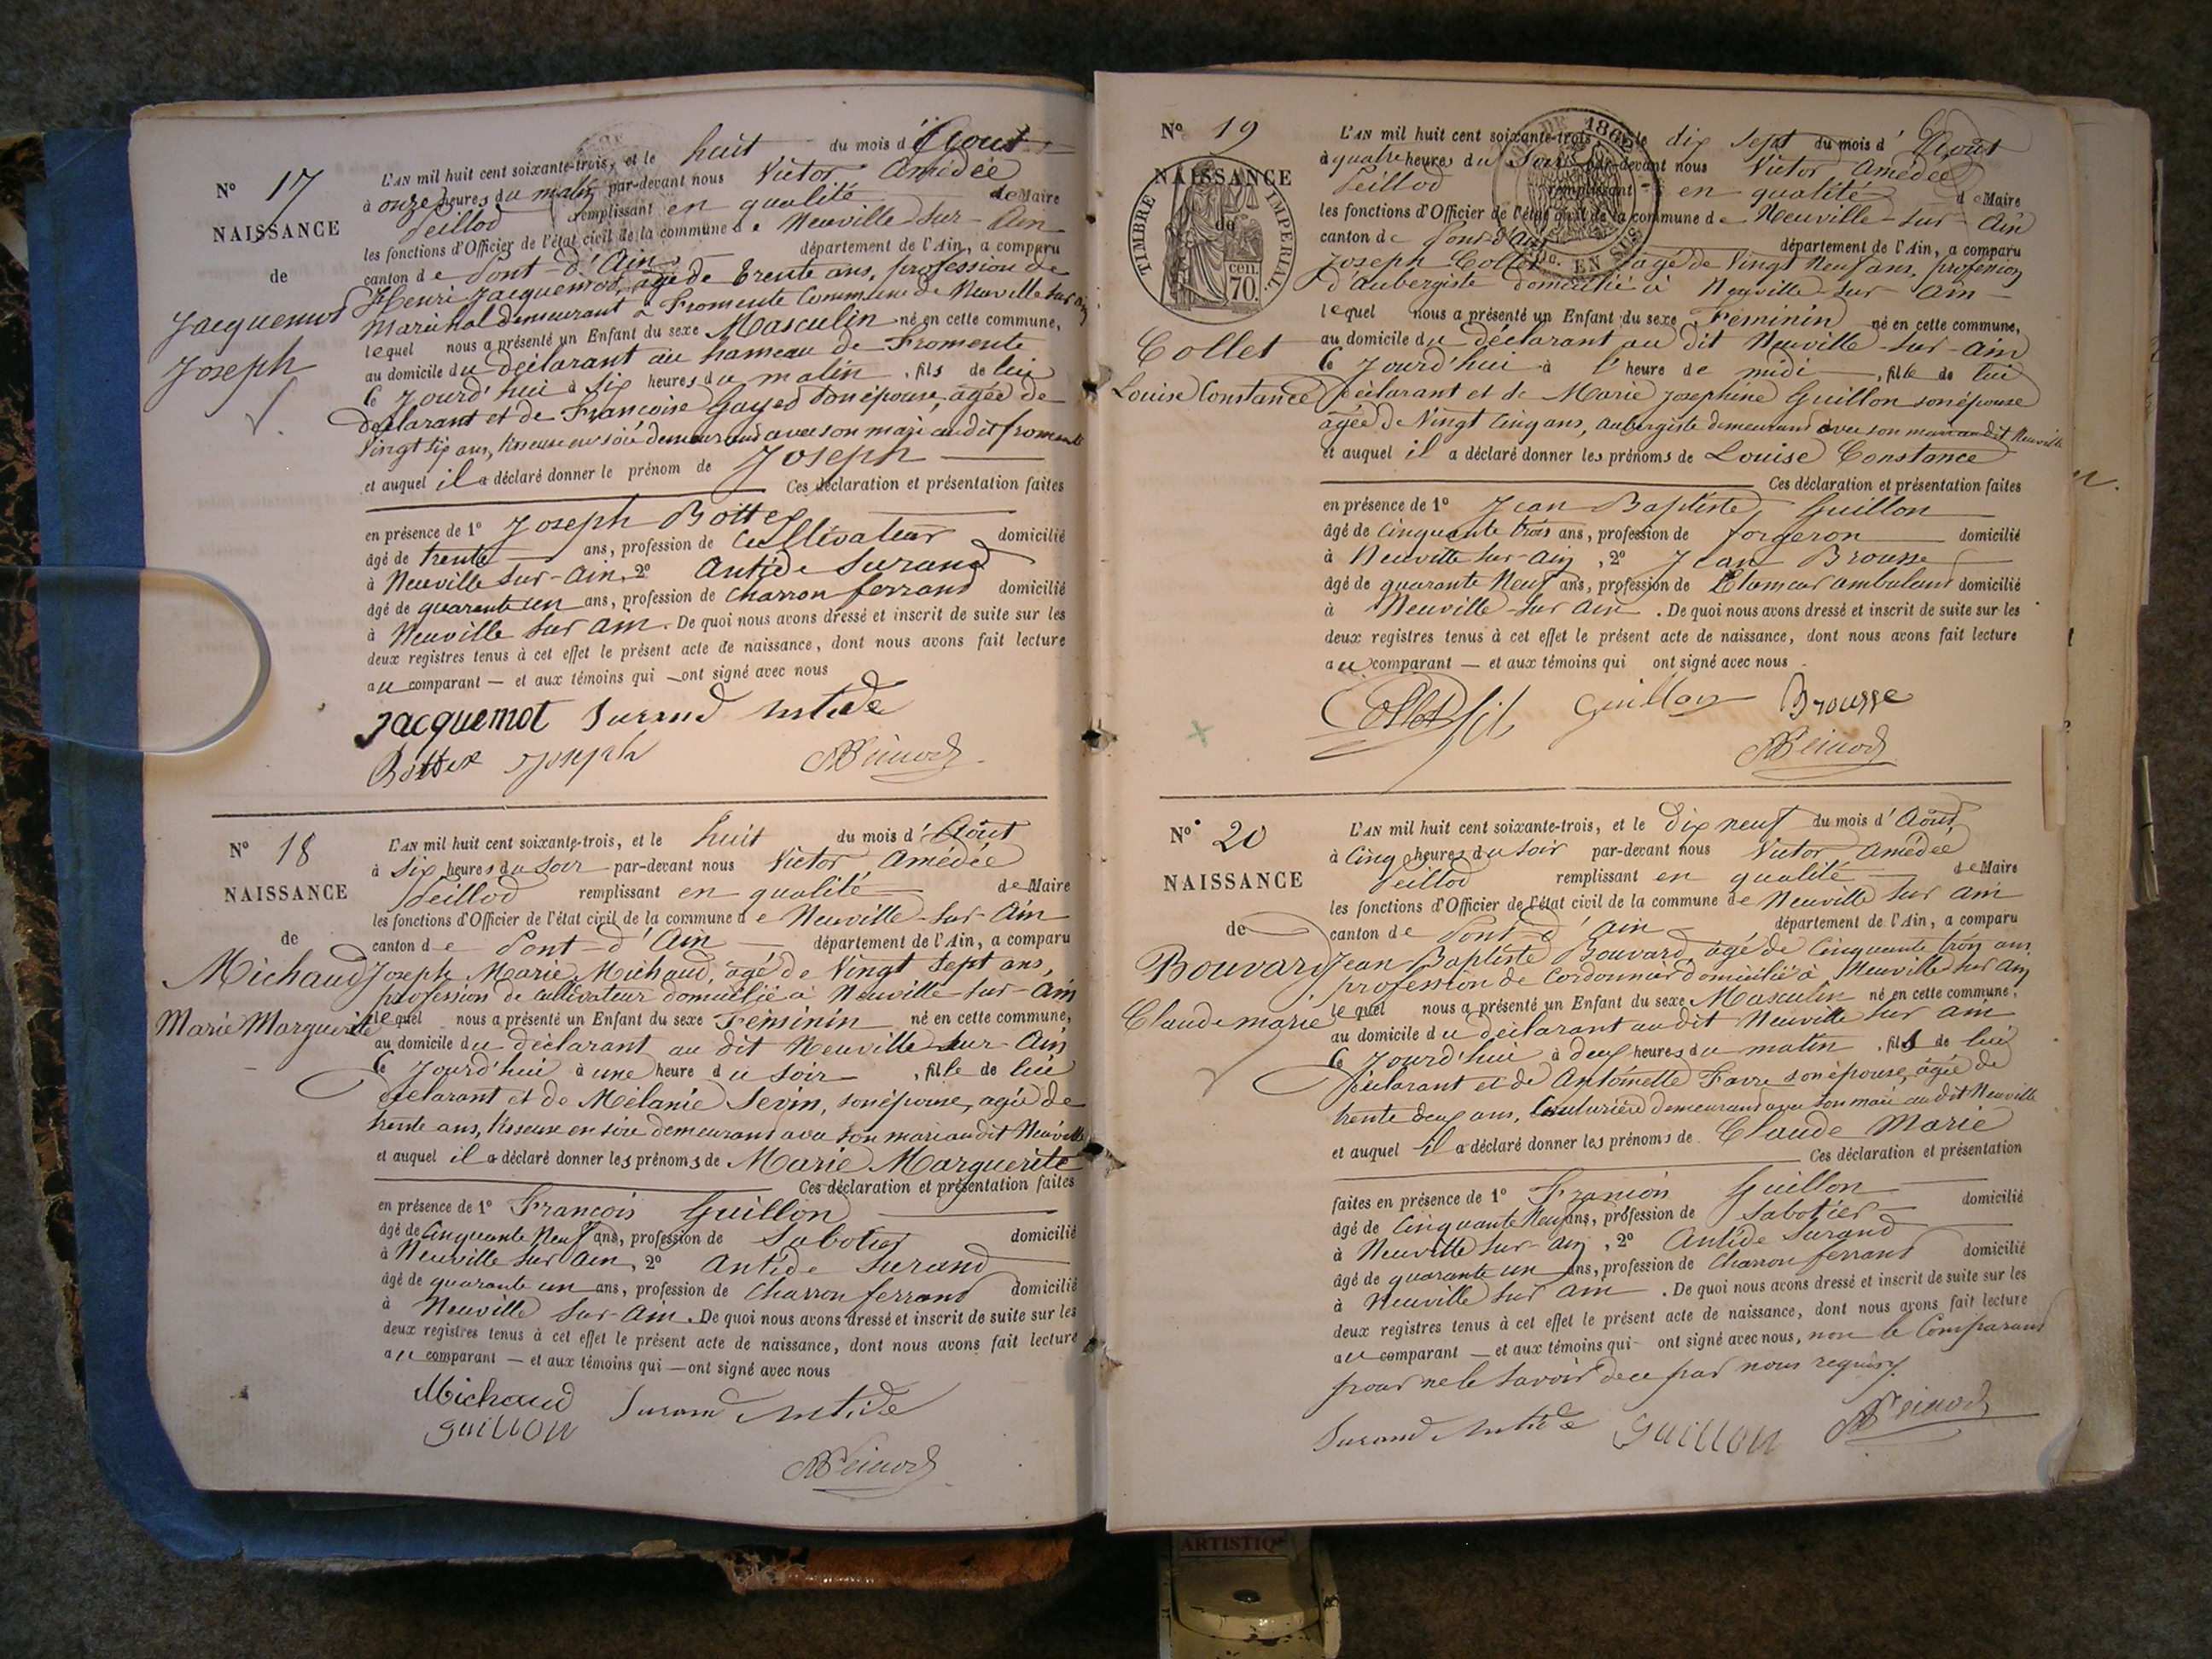 N° 17
NAISSANCE
de
Jacquemot
Joseph
L'AN mil huit cent soixante-trois, et le huit du mois d'Aout
à onze heures du matin par-devant nous Victor Amédée
Peillod remplissant en qualité de Maire
les fonctions d'Officier de l'état civil de la commune de Neuville sur-Ain
canton de Pont-d'Ain département de l'Ain, a comparu
Henri Jacquemot, agé de trente ans, profession de
Maréchal demeurant à Fromente Commune de Neuville sur Ain
lequel nous a présenté un Enfant du sexe Masculin né en cette commune,
au domicile du déclarant au hameau de Fromente
ce jourd'hui à six heures du matin, fils de lui
déclarant et de Françoise Gayed son épouse, agée de
vingt six ans, tisseuse en soie demeurant avec son mari audit fromente
et auquel il a déclaré donner le prénom de Joseph
Ces déclaration et présentation faites
en présence de 1° Joseph Bottex
âgé de trente ans, profession de Cultivateur domicilié
à Neuville sur-Ain, 2° Antide Surand
âgé de quarante un ans, profession de Charron ferrand domicilié
à Neuville sur Ain. De quoi nous avons dressé et inscrit de suite sur les
deux registres tenus à cet effet le présent acte de naissance, dont nous avons fait lecture
au comparant — et aux témoins qui — ont signé avec nous
Jacquemot Surand Antide
Bottex Joseph
N° 18
NAISSANCE
de
Michaud
Marie Marguerite
L'AN mil huit cent soixante-trois, et le huit du mois d'Août
à six heures du soir par-devant nous Victor Amédée
Peillod remplissant en qualité de Maire
les fonctions d'Officier de l'état civil de la commune de Neuville-sur-Ain
canton de Pont-d'Ain département de l'Ain, a comparu
Joseph Marie Michaud, agé de vingt sept ans,
profession de cultivateur domicilié à Neuville-sur-Ain
lequel nous a présenté un Enfant du sexe Féminin né en cette commune,
au domicile du déclarant au dit Neuville-sur-Ain
ce jourd'hui à une heure du soir, fille de lui
déclarant et de Mélanie Sevin, son épouse, agée de
trente ans, tisseuse en soie demeurant avec son mari au dit Neuville
et auquel il a déclaré donner les prénoms de Marie Marguerite
Ces déclaration et présentation faites
en présence de 1° François Guillon
âgé de Cinquante Neuf ans, profession de Sabotier domicilié
à Neuville sur Ain, 2° Antide Surand
âgé de quarante un ans, profession de Charron ferrand domicilié
à Neuville sur-Ain. De quoi nous avons dressé et inscrit de suite sur les
deux registres tenus à cet effet le présent acte de naissance, dont nous avons fait lecture
au comparant — et aux témoins qui — ont signé avec nous
Michaud Surand Antide
Guillon
N° 19
NAISSANCE
de
TIMBRE IMPERIAL
cen.
70.
Collet
Louise Constance
L'AN mil huit cent soixante-trois, et le dix sept du mois d'Août
à quatre heures du soir par-devant nous Victor Amédée
Peillod remplissant en qualité de Maire
les fonctions d'Officier de l'état civil de la commune de Neuville-sur-Ain
canton de Pont-d'Ain département de l'Ain, a comparu
Joseph Collet agé de vingt neuf ans, profession
d'Aubergiste domicilié à Neuville-sur-Ain
lequel nous a présenté un Enfant du sexe Féminin né en cette commune,
au domicile du déclarant au dit Neuville-sur-Ain
ce jourd'hui à l'heure de midi, fille de lui
déclarant et de Marie Josephine Guillon son épouse
agée de vingt cinq ans, aubergiste demeurant avec son mari au dit Neuville
et auquel il a déclaré donner les prénoms de Louise Constance
Ces déclaration et présentation faites
en présence de 1° Jean Baptiste Guillon
âgé de cinquante trois ans, profession de forgeron domicilié
à Neuville sur-Ain, 2° Jean Brousse
âgé de quarante Neuf ans, profession de Etameur ambulant domicilié
à Neuville-sur Ain. De quoi nous avons dressé et inscrit de suite sur les
deux registres tenus à cet effet le présent acte de naissance, dont nous avons fait lecture
au comparant — et aux témoins qui ont signé avec nous
Collet fils Guillon Brousse
N° 20
NAISSANCE
de
Bouvard
Claude marie
L'AN mil huit cent soixante-trois, et le dix neuf du mois d'Août
à cinq heures du soir par-devant nous Victor Amédée
Peillod remplissant en qualité de Maire
les fonctions d'Officier de l'état civil de la commune de Neuville sur Ain
canton de Pont d'Ain département de l'Ain, a comparu
Jean Baptiste Bouvard, agé de cinquante trois ans
profession de cordonnier domicilié à Neuville sur Ain
lequel nous a présenté un Enfant du sexe Masculin né en cette commune,
au domicile du déclarant au dit Neuville sur Ain
ce jourd'hui à deux heures du matin, fils de lui
déclarant et de Antoinette Favre son épouse, agée de
trente deux ans, couturière demeurant avec son mari au dit Neuville
et auquel il a déclaré donner les prénoms de Claude Marie
Ces déclaration et présentation
faites en présence de 1° François Guillon domicilié
âgé de cinquante Neuf ans, profession de Sabotier
à Neuville sur-Ain, 2° Antide Surand
âgé de quarante un ans, profession de Charron ferrand domicilié
à Neuville sur Ain. De quoi nous avons dressé et inscrit de suite sur les
deux registres tenus à cet effet le présent acte de naissance, dont nous avons fait lecture
au comparant — et aux témoins qui ont signé avec nous, non le Comparant
pour ne le savoir de ce par nous requis.
Surand Antide Guillon
ARTISTIQ